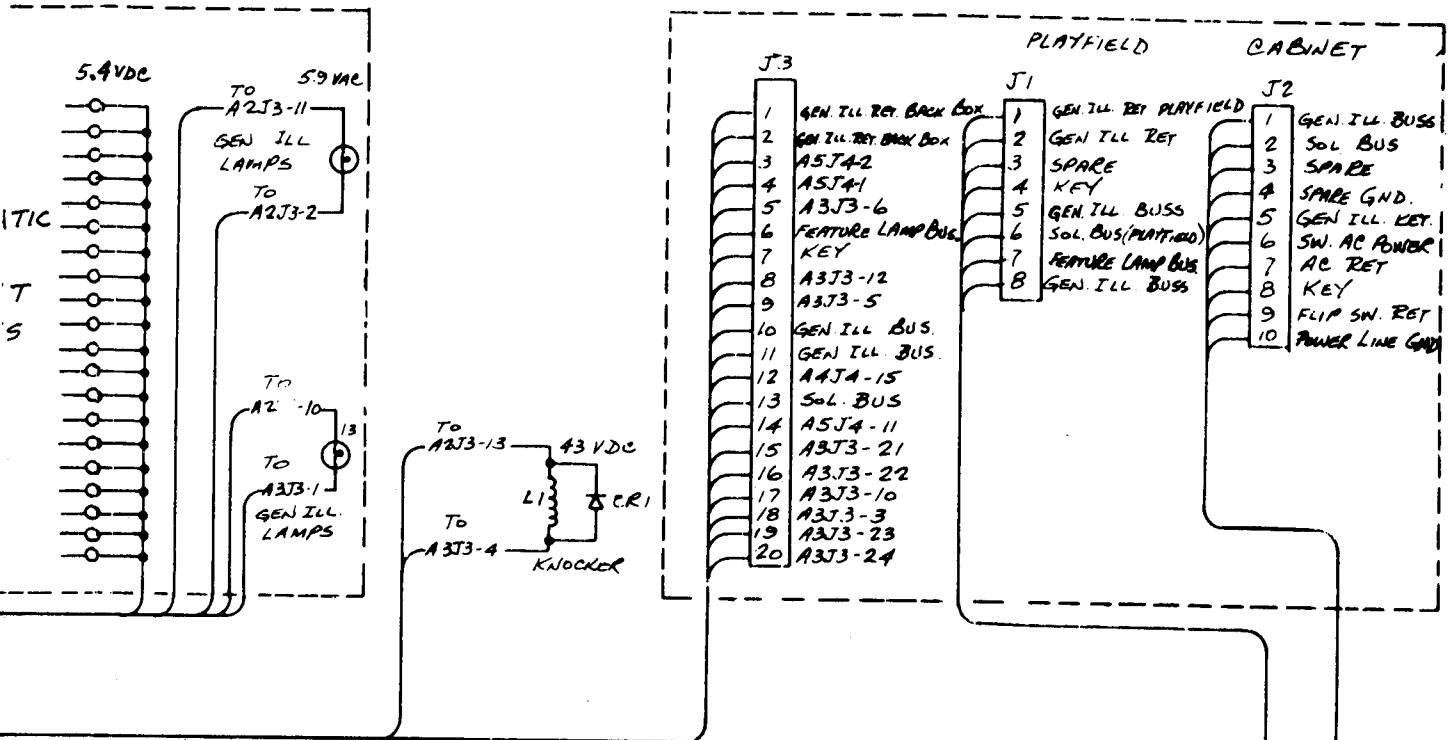 5.4 VDC
5.9 VAC
TO
A2J3-11
GEN ILL
LAMPS
TO
A2J3-2
ITIC
T
S
TO
A2 -10
13
TO
A3J3-1
GEN ILL.
LAMPS
TO
A2J3-13
43 VDC
L1
CR1
TO
A3J3-4
KNOCKER
J3
1 GEN. ILL. RET. BACK BOX
2 GEN. ILL. RET. BACK BOX
3 A5J4-2
4 A5J4-1
5 A3J3-6
6 FEATURE LAMP BUS.
7 KEY
8 A3J3-12
9 A3J3-5
10 GEN. ILL BUS.
11 GEN ILL. BUS.
12 A4J4-15
13 SOL. BUS
14 A5J4-11
15 A3J3-21
16 A3J3-22
17 A3J3-10
18 A3J3-3
19 A3J3-23
20 A3J3-24
PLAYFIELD
J1
1 GEN. ILL. RET PLAYFIELD
2 GEN ILL RET
3 SPARE
4 KEY
5 GEN. ILL. BUSS
6 SOL. BUS (PLAYFIELD)
7 FEATURE LAMP BUS.
8 GEN. ILL. BUSS
CABINET
J2
1 GEN. ILL. BUSS
2 SOL BUS
3 SPARE
4 SPARE GND.
5 GEN ILL. RET.
6 SW. AC POWER
7 AC RET
8 KEY
9 FLIP SW. RET
10 POWER LINE GND